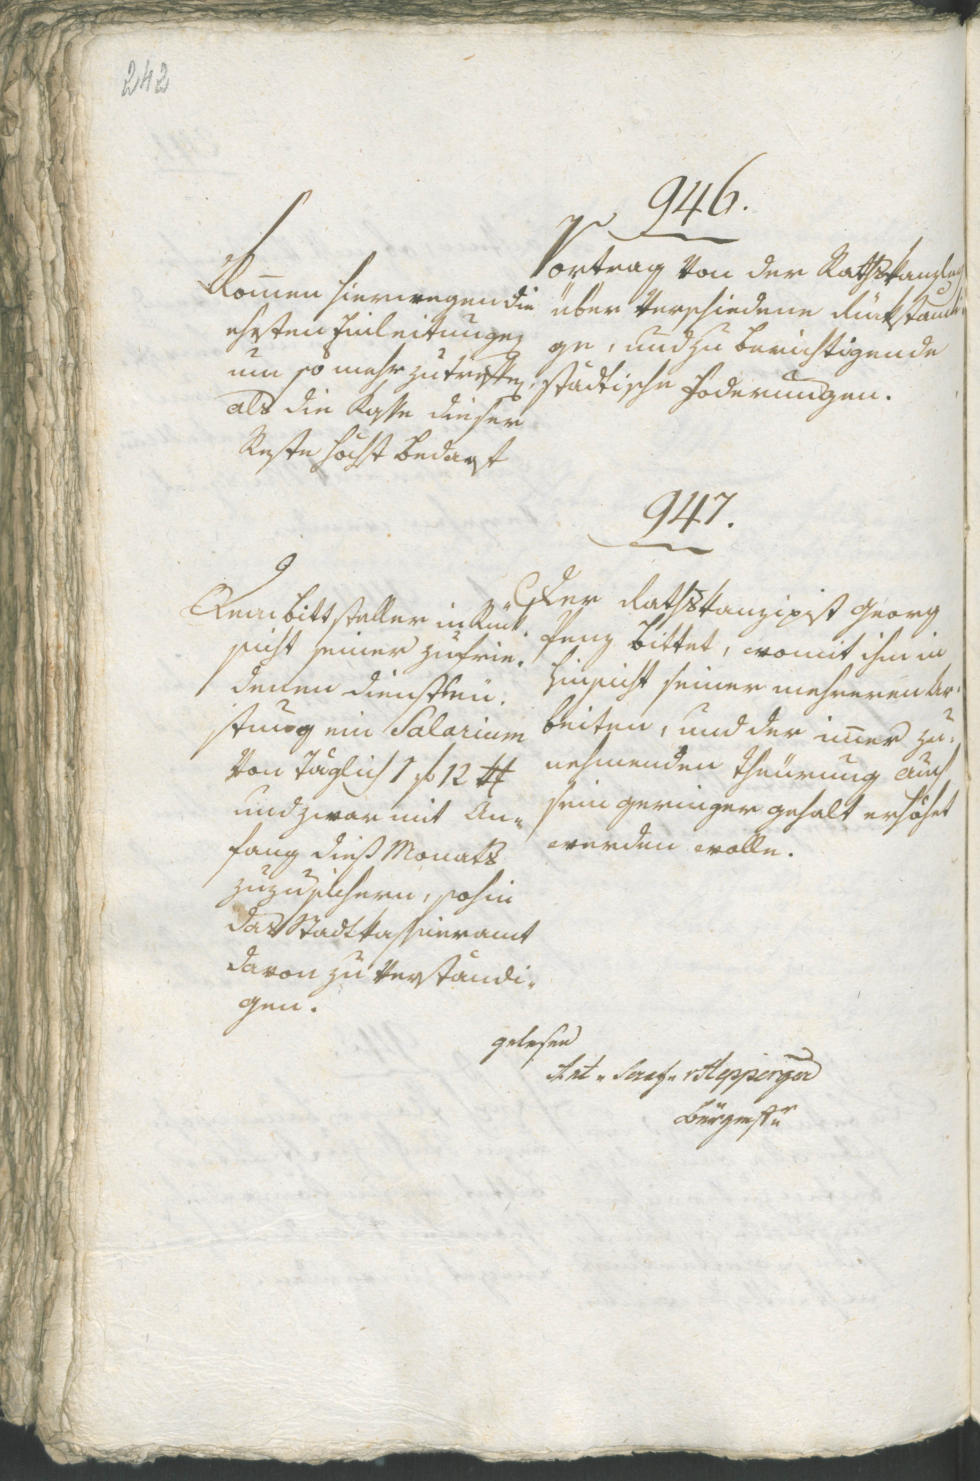 242
946.
Vortrag von der Rathskanzley
über verschiedene rückständi-
ge, und zu berichtigende
städtische Foderungen.
Kom̄en hierwegen die
ehesten Einleitungen
um so mehr zu treffen,
als die Kasse dieser
Reste höchst bedarf
947.
Der Rathskanzipist Georg
Penz bittet, womit ihm in
Hinsicht seiner mehreren Ar-
beiten, und der im̄er zu-
nehmenden Theürung auch
sein geringer gehalt erhöhet
werden wolle.
Dem bittsteller in Rük-
sicht seiner zufrie-
denen dienstlei-
stung ein Salarium
von täglich 1 f 12 xr
und zwar mit An-
fang dieß Monats
zuzusichern, sohin
das Stadtkassieramt
davon zu verständi-
gen.
gelesen
Ant. v. Hepperger
Bürgmstr